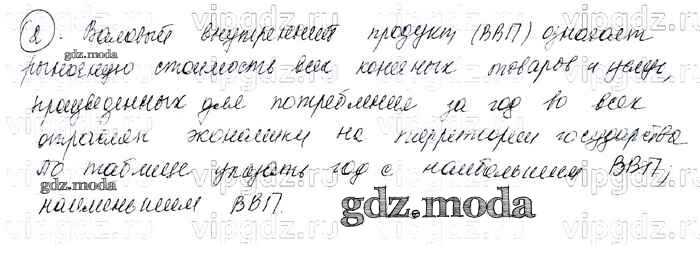 2. Валовый внутренний продукт (ВВП) означает
рыночную стоимость всех конечных товаров и услуг,
произведенных для потребления за год во всех
отраслях экономики на территории государства
По таблице указать год с наибольшим ВВП,
наименьшим ВВП.
gdz.moda
gdz.moda
gdz.moda
vipgdz.ru